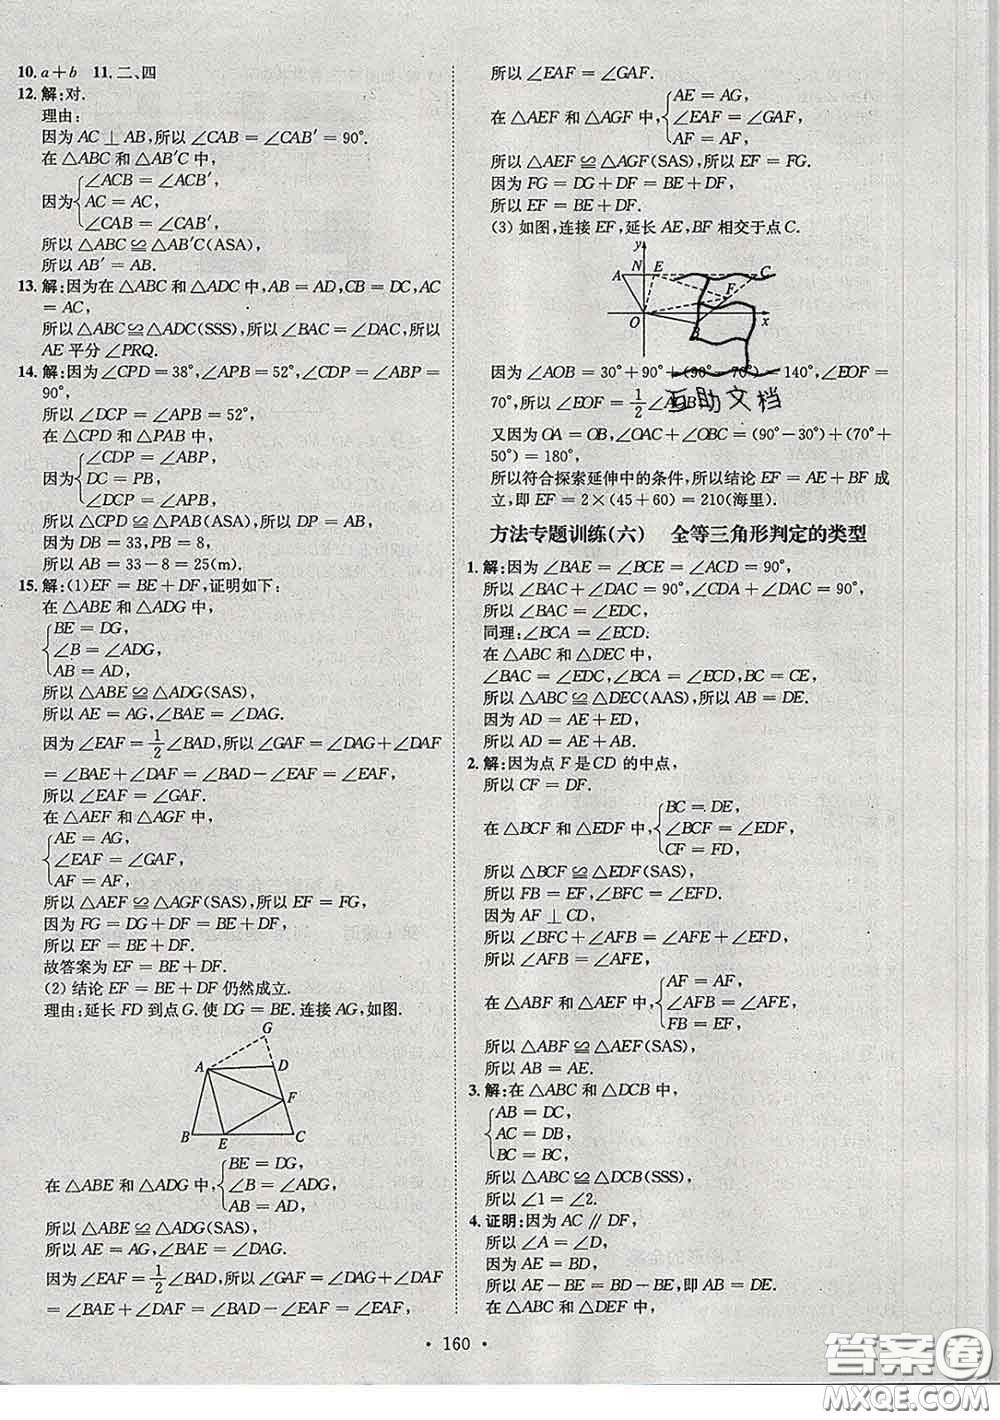 10. a+b  11. 二、四
12. 解:对.
理由:
因为 AC ⊥ AB,所以 ∠CAB = ∠CAB′ = 90°.
在 △ABC 和 △AB′C 中,
因为{∠ACB = ∠ACB′,
AC = AC,
∠CAB = ∠CAB′,
所以 △ABC ≌ △AB′C(ASA),
所以 AB′ = AB.
13. 解:因为在 △ABC 和 △ADC 中,AB = AD,CB = DC,AC
= AC,
所以 △ABC≌△ADC(SSS),所以 ∠BAC = ∠DAC,所以
AE 平分 ∠PRQ.
14. 解:因为 ∠CPD = 38°,∠APB = 52°,∠CDP = ∠ABP =
90°,
所以 ∠DCP = ∠APB = 52°,
在 △CPD 和 △PAB 中,
因为{∠CDP = ∠ABP,
DC = PB,
∠DCP = ∠APB,
所以 △CPD ≌ △PAB(ASA),所以 DP = AB.
因为 DB = 33,PB = 8,
所以 AB = 33 − 8 = 25(m).
15. 解:(1)EF = BE + DF,证明如下:
在 △ABE 和 △ADG 中,
{BE = DG,
∠B = ∠ADG,
AB = AD,
所以 △ABE ≌ △ADG(SAS),
所以 AE = AG,∠BAE = ∠DAG.
因为 ∠EAF = 1/2 ∠BAD,所以 ∠GAF = ∠DAG + ∠DAF
= ∠BAE + ∠DAF = ∠BAD − ∠EAF = ∠EAF,
所以 ∠EAF = ∠GAF.
在 △AEF 和 △AGF 中,
{AE = AG,
∠EAF = ∠GAF,
AF = AF,
所以 △AEF ≌ △AGF(SAS),所以 EF = FG,
因为 FG = DG + DF = BE + DF,
所以 EF = BE + DF.
故答案为 EF = BE + DF.
(2) 结论 EF = BE + DF 仍然成立.
理由:延长 FD 到点 G. 使 DG = BE. 连接 AG,如图.
G
A D
F
B E C
在 △ABE 和 △ADG 中,{BE = DG,
∠B = ∠ADG,
AB = AD,
所以 △ABE ≌ △ADG(SAS),
所以 AE = AG,∠BAE = ∠DAG.
因为 ∠EAF = 1/2 ∠BAD,所以 ∠GAF = ∠DAG + ∠DAF =
∠BAE + ∠DAF = ∠BAD − ∠EAF = ∠EAF,
所以 ∠EAF = ∠GAF.
在 △AEF 和 △AGF 中,{AE = AG,
∠EAF = ∠GAF,
AF = AF,
所以 △AEF ≌ △AGF(SAS),所以 EF = FG.
因为 FG = DG + DF = BE + DF,
所以 EF = BE + DF.
(3) 如图,连接 EF,延长 AE,BF 相交于点 C.
y
A N E C
F
O B x
因为 ∠AOB = 30° + 90° + (90° − 70°) = 140°,∠EOF =
70°,所以 ∠EOF = 1/2 ∠AOB
互助文档
又因为 OA = OB,∠OAC + ∠OBC = (90° − 30°) + (70° +
50°) = 180°,
所以符合探索延伸中的条件,所以结论 EF = AE + BF 成
立,即 EF = 2 × (45 + 60) = 210(海里).
方法专题训练(六) 全等三角形判定的类型
1. 解:因为 ∠BAE = ∠BCE = ∠ACD = 90°,
所以 ∠BAC + ∠DAC = 90°,∠CDA + ∠DAC = 90°,
所以 ∠BAC = ∠EDC,
同理:∠BCA = ∠ECD.
在 △ABC 和 △DEC 中,
∠BAC = ∠EDC,∠BCA = ∠ECD,BC = CE,
所以 △ABC ≌ △DEC(AAS),所以 AB = DE.
因为 AD = AE + ED,
所以 AD = AE + AB.
2. 解:因为点 F 是 CD 的中点,
所以 CF = DF.
在 △BCF 和 △EDF 中,{BC = DE,
∠BCF = ∠EDF,
CF = FD,
所以 △BCF ≌ △EDF(SAS),
所以 FB = EF,∠BFC = ∠EFD.
因为 AF ⊥ CD,
所以 ∠BFC + ∠AFB = ∠AFE + ∠EFD,
所以 ∠AFB = ∠AFE,
在 △ABF 和 △AEF 中,{AF = AF,
∠AFB = ∠AFE,
FB = EF,
所以 △ABF ≌ △AEF(SAS),
所以 AB = AE.
3. 解:在 △ABC 和 △DCB 中,
{AB = DC,
AC = DB,
BC = BC,
所以 △ABC ≌ △DCB(SSS),
所以 ∠1 = ∠2.
4. 证明:因为 AC ∥ DF,
所以 ∠A = ∠D,
因为 AE = BD,
所以 AE − BE = BD − BE,即 AB = DE.
在 △ABC 和 △DEF 中,
· 160 ·
答案圈
MXQE.COM